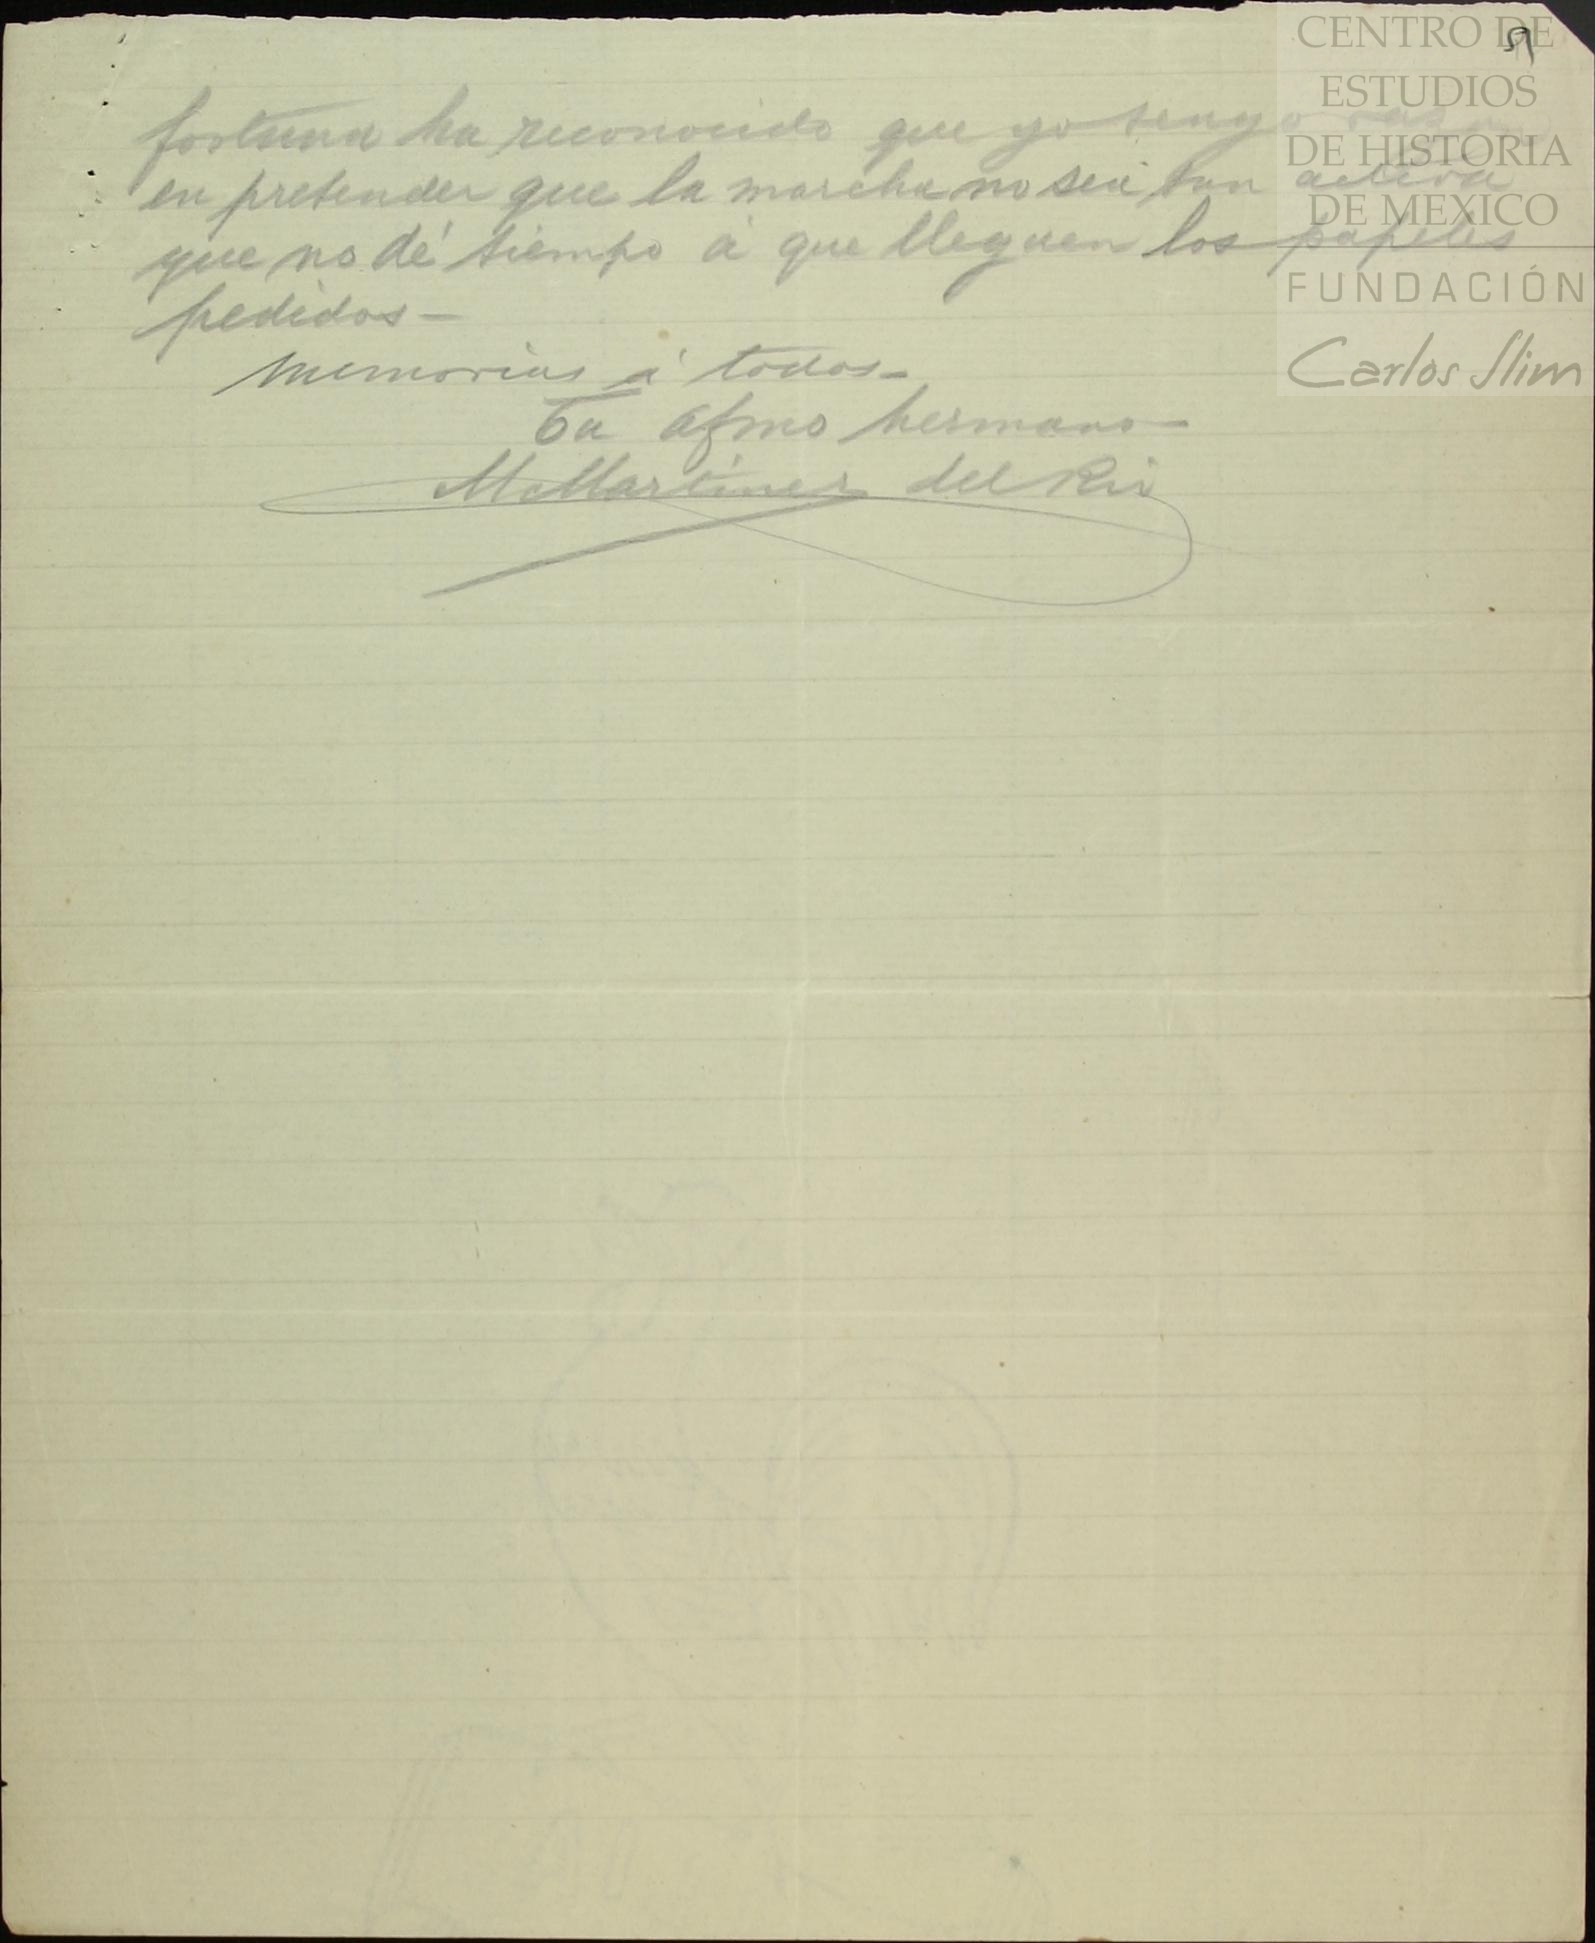 fortuna ha reconocido que yo tengo razon
en pretender que la marcha no sea tan activa
que no dé tiempo á que lleguen los papeles
pedidos—
Memorias á todos—
Tu afmo hermano—
M Martinez del Rio
CENTRO DE
ESTUDIOS
DE HISTORIA
DE MEXICO
FUNDACIÓN
Carlos Slim